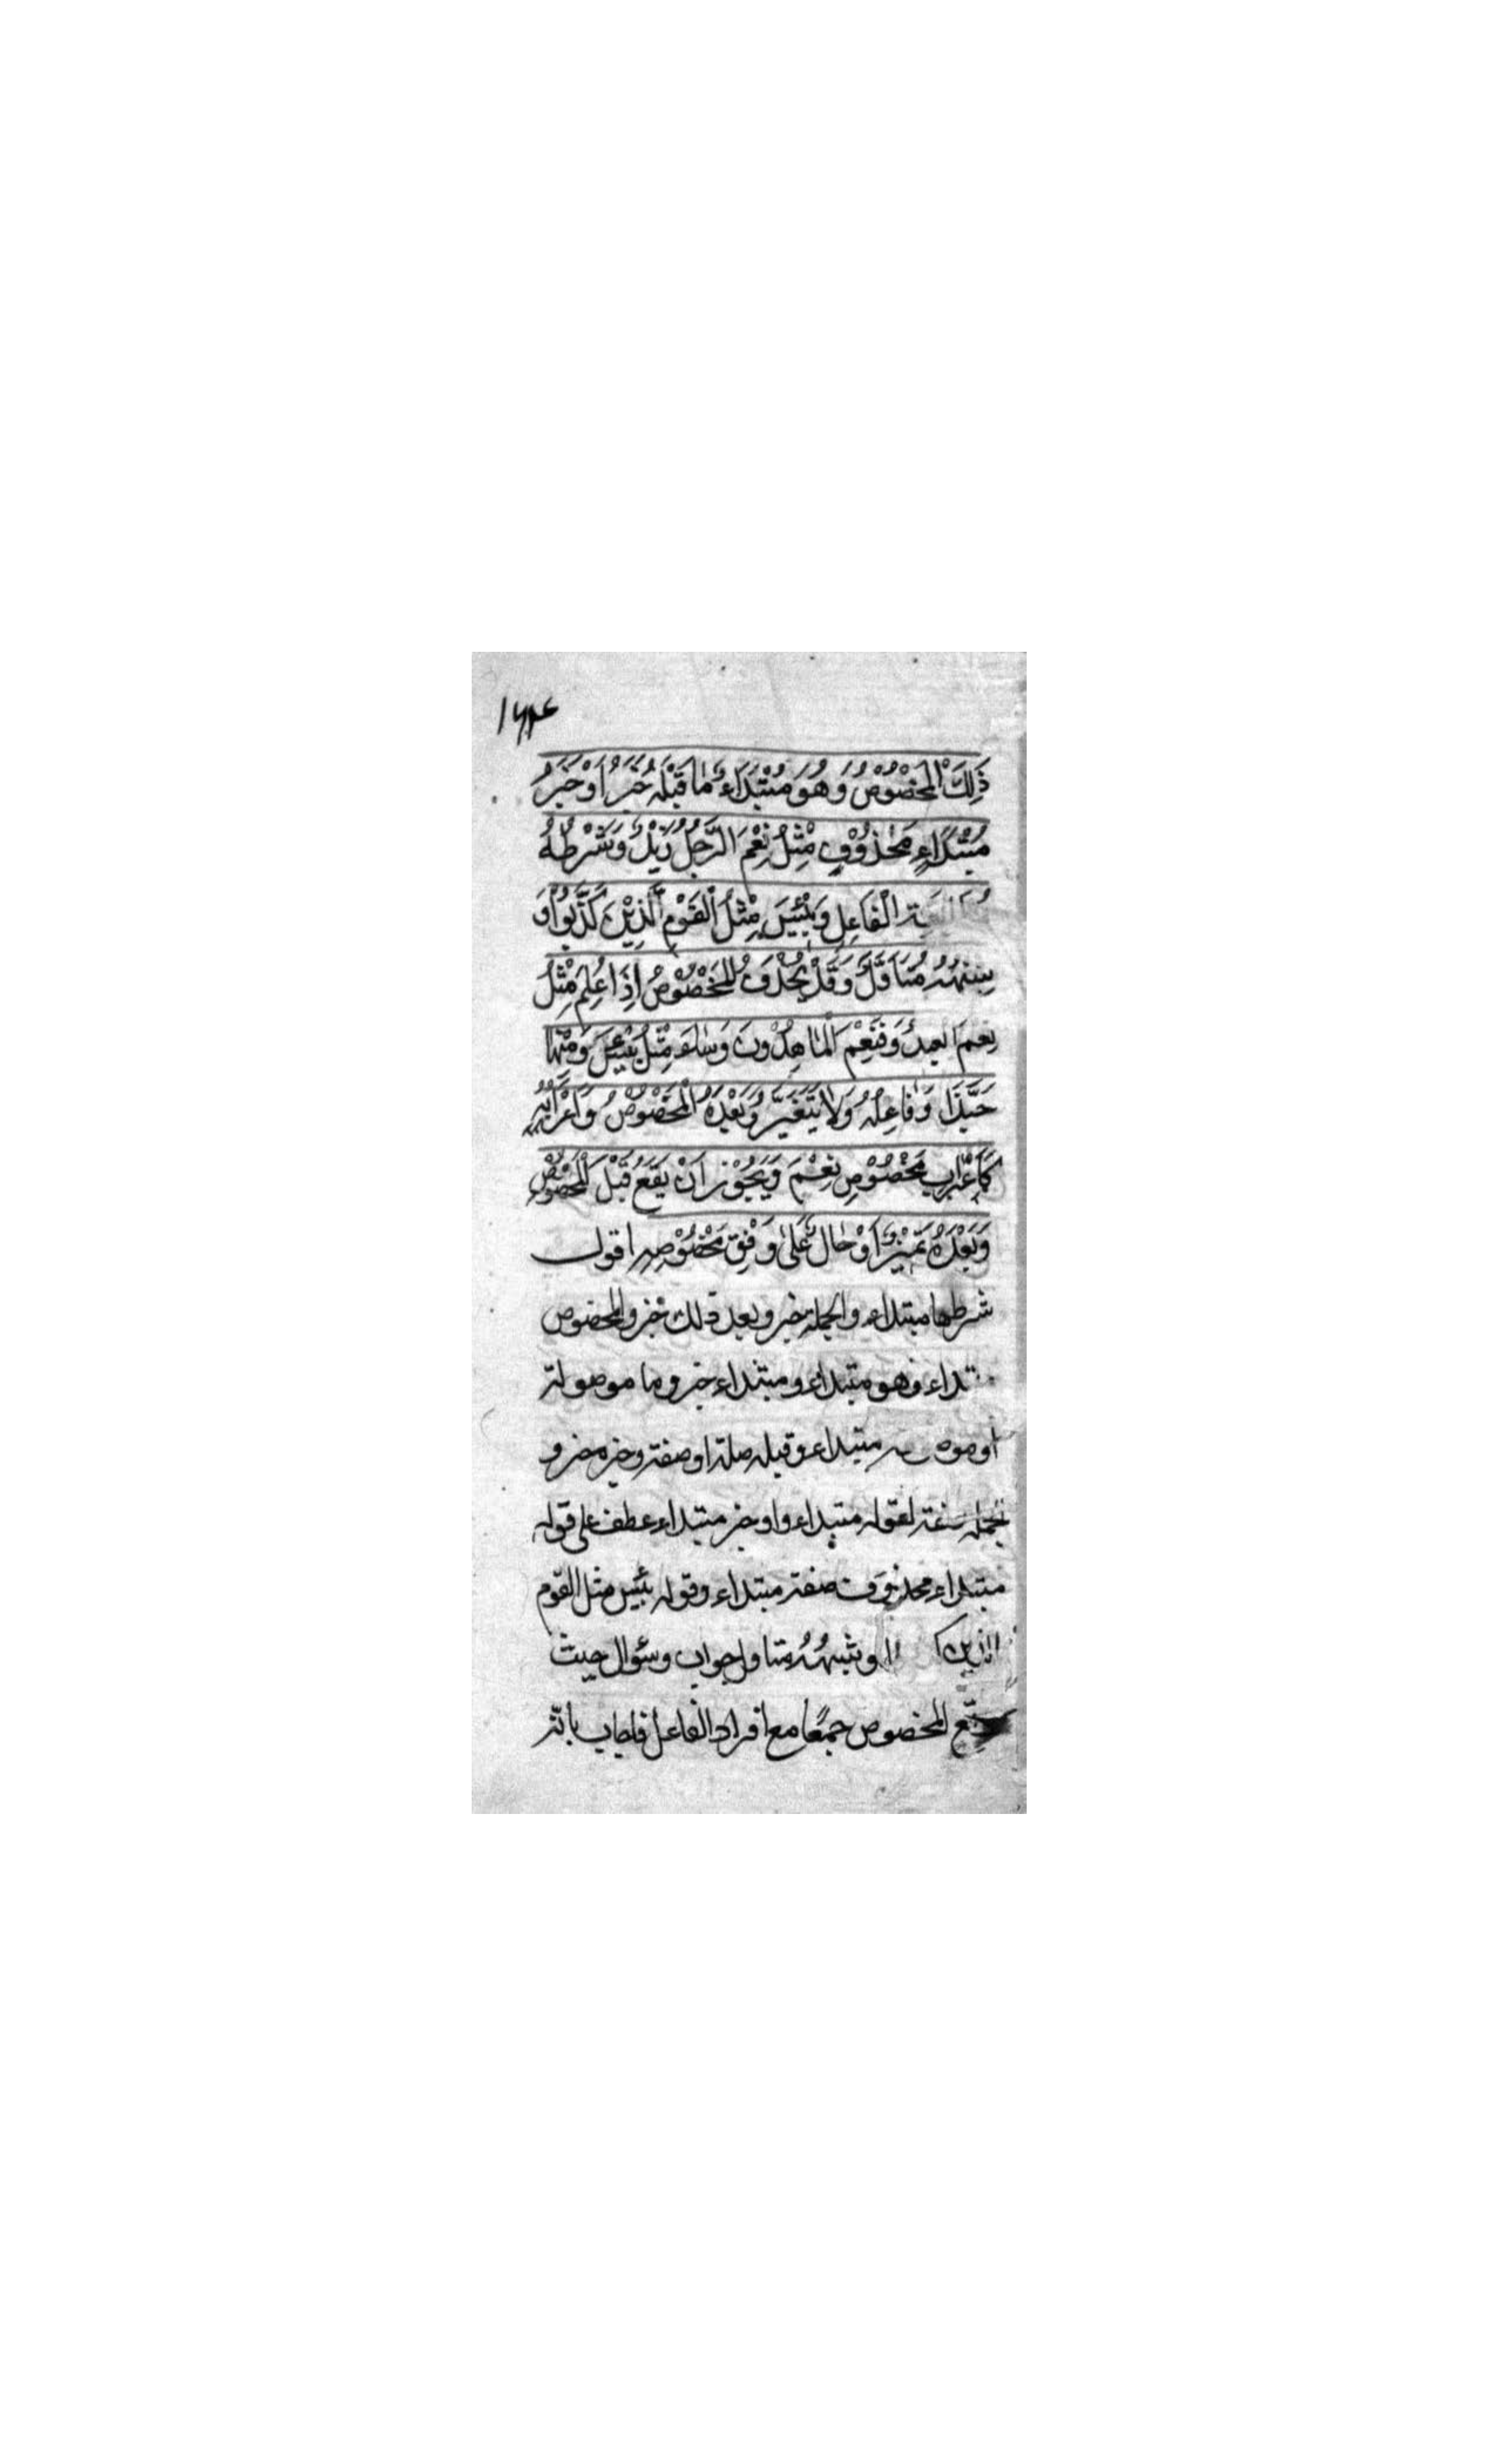 ذَلِكَ الْمَخْصُوْصُ وَهُوَ مُبْتَدَاءٌ مَا قَبْلَهُ خَبَرُهُ اَوْ خَبَرُ
مُبْتَدَاءٍ مَحْذُوْفٍ مِثْلُ نِعْمَ الرَّجُلُ زَيْدٌ وَشَرْطُهُ
الْفَاعِلِ وَبِئْسَ مِثْلُ الْقَوْمِ الَّذِيْنَ كَذَّبُوْا وَ
شِبْهُهُ مُتَاَوَّلٌ وَقَدْ يُحْذَفُ الْمَخْصُوْصُ اِذَا عُلِمَ مِثْلُ
نِعْمَ الْعَبْدُ وَفَنِعْمَ الْمَاهِدُوْنَ وَسَاءَ مِثْلُ بِئْسَ وَمِنْهَا
حَبَّذَا وَفَاعِلُهُ وَلَا يَتَغَيَّرُ وَبَعْدَهُ الْمَخْصُوْصُ وَاِعْرَابُهُ
كَاِعْرَابِ مَخْصُوْصِ نِعْمَ وَيَجُوْزُ اَنْ يَقَعَ قَبْلَ الْمَخْصُوْصِ
وَبَعْدَهُ تَمِيْزٌ اَوْ حَالٌ عَلَى وَفْقِ مَخْصُوْصِهِ اقول
شرطها مبتداء والجملة خبر وبعد ذلك خبر والمخصوص
تداء وهو مبتداء ومبتداء خبر وما موصولة
مبتداء وقبله صلة او صفة وخبره خبر و
لجملة صفة لقوله مبتداء واو خبر مبتداء عطف على قوله
مبتداء محذوف صفة مبتداء وقوله بئس مثل القوم
الذين وشبهُهُ متاول جواب وسؤال حيث
المخصوص جمعًا مع افراد الفاعل فاجاب بانّه